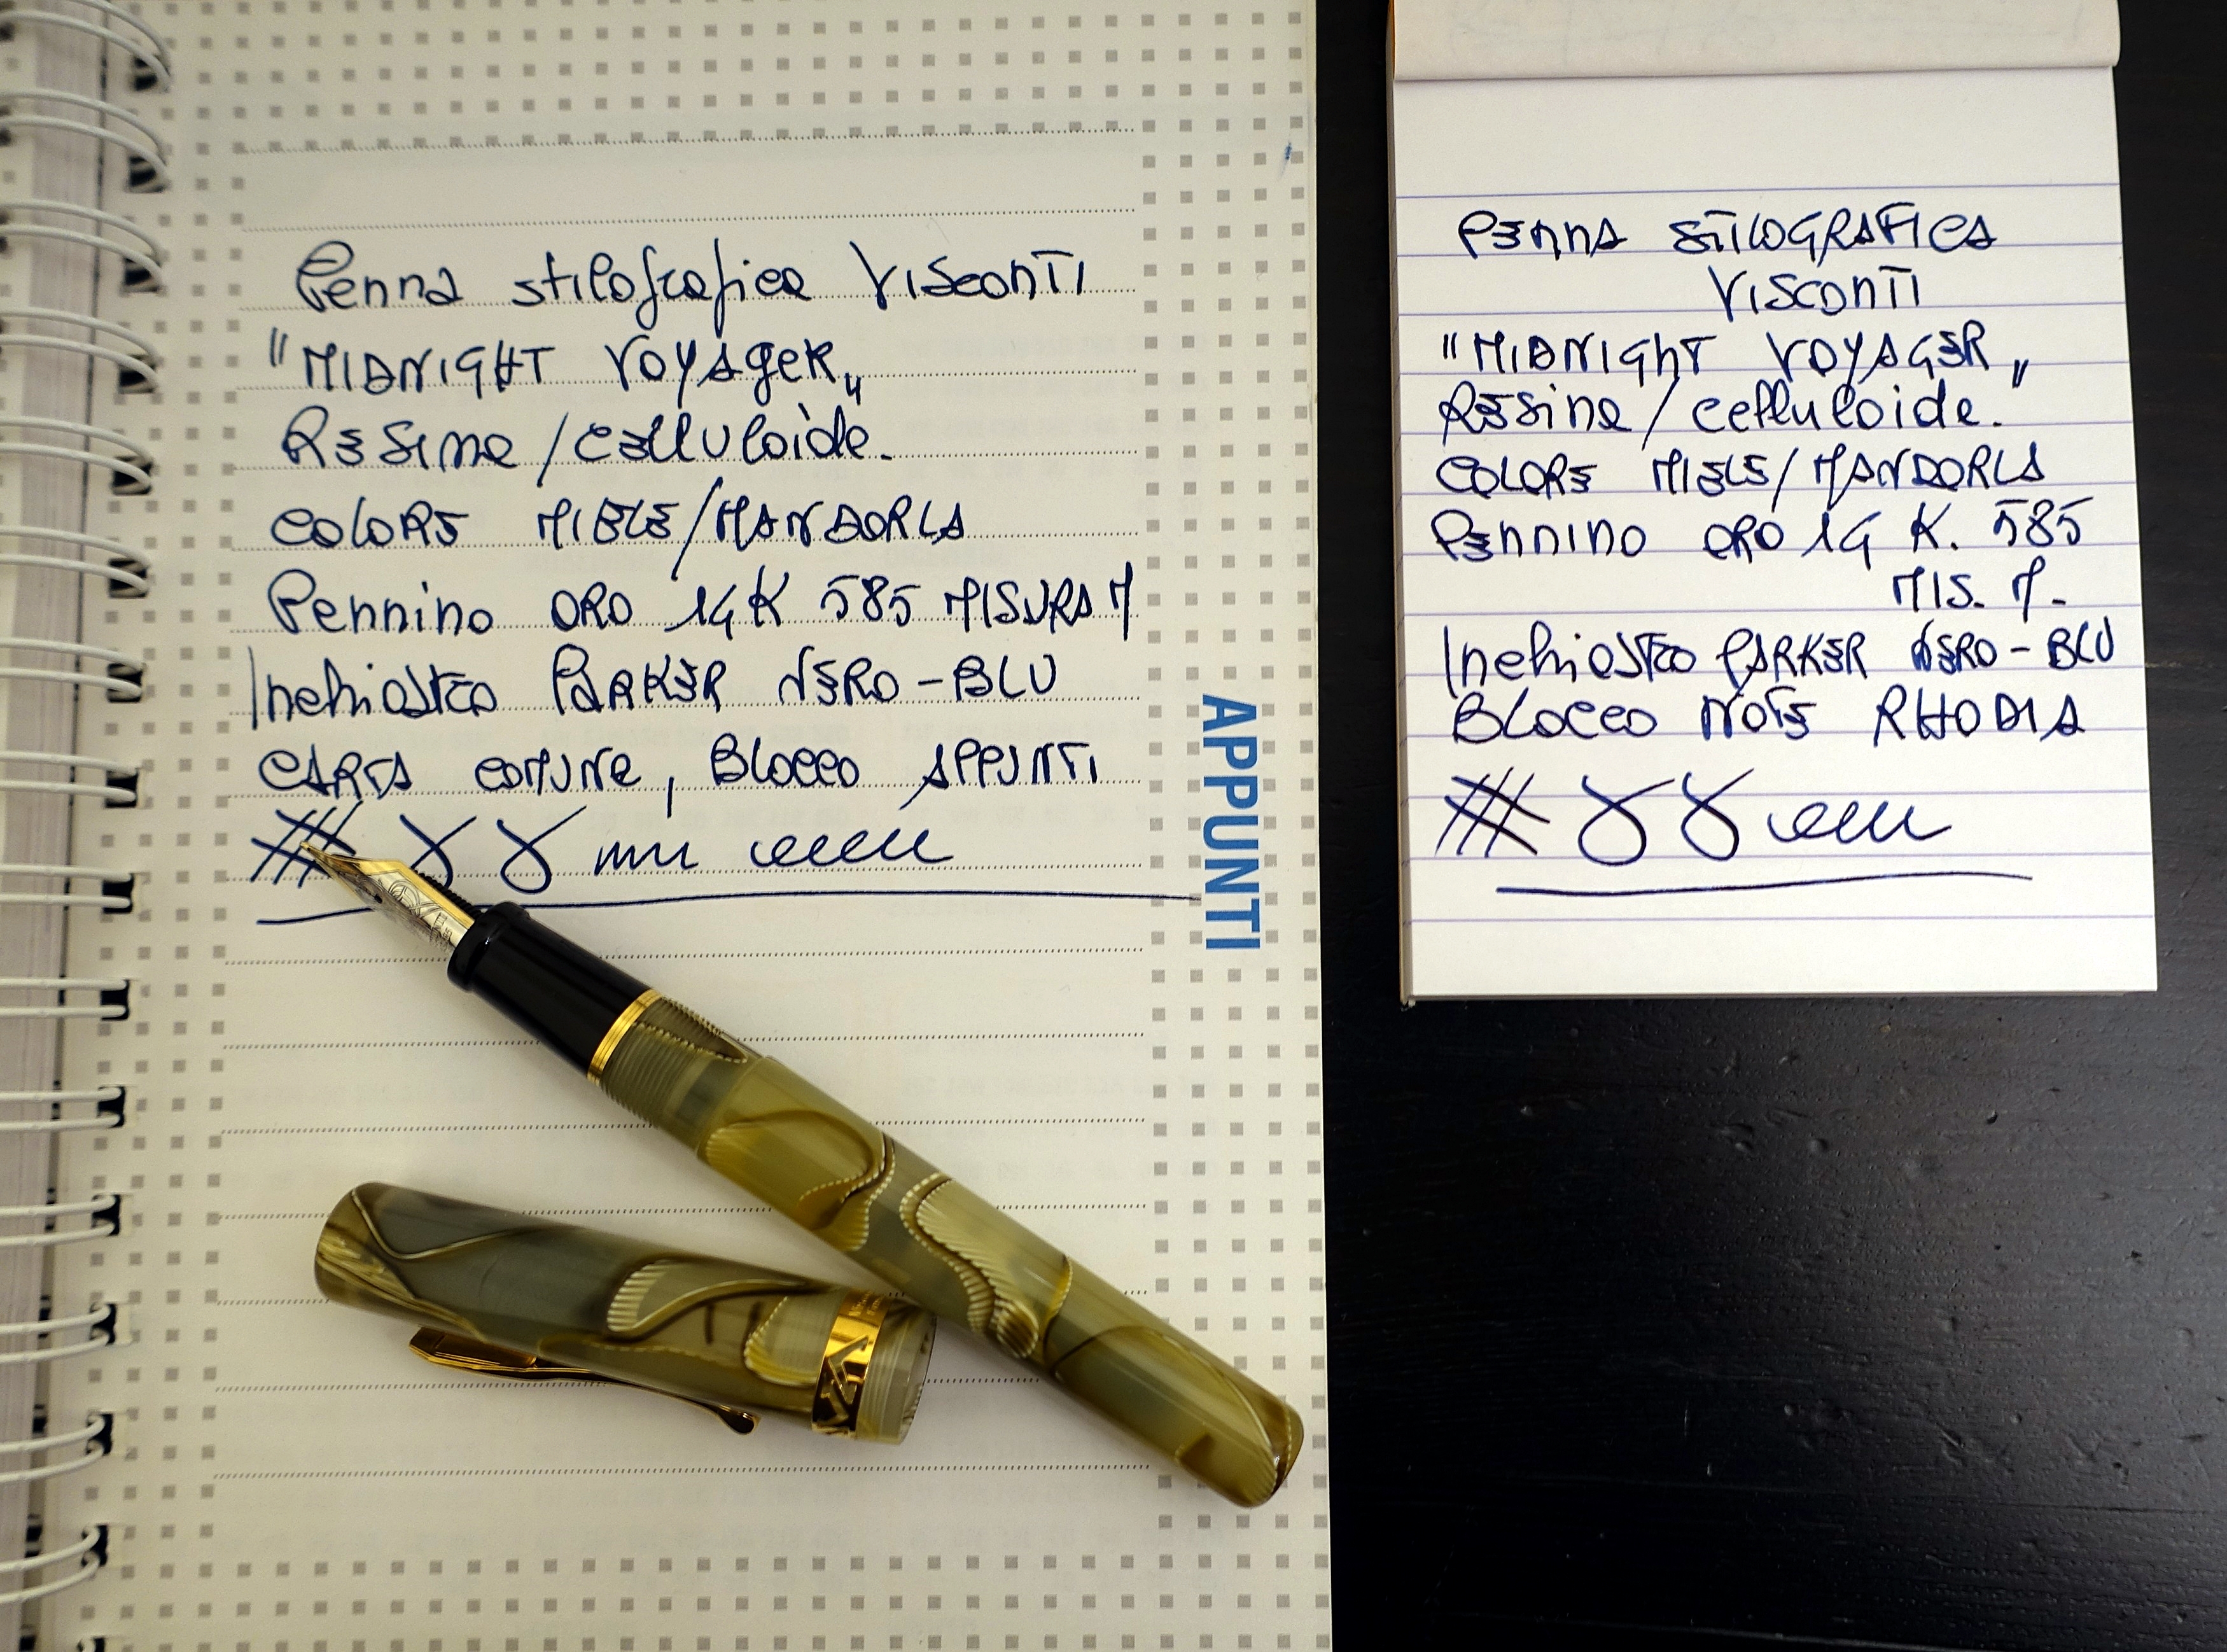 Penna stilografica Visconti
"MIDNIGHT VOYAGER„
Resina/celluloide.
COLORE MIELE/MANDORLA
Pennino ORO 14K 585 MISURA M
Inchiostro PARKER NERO-BLU
CARTA comune, Blocco APPUNTI
APPUNTI
PENNA STILOGRAFICA
VISCONTI
"MIDNIGHT VOYAGER„
Resina/celluloide.
COLORE MIELE/MANDORLA
Pennino ORO 14 K. 585
MIS. M-
Inchiostro PARKER NERO-BLU
BLOCCO NOTE RHODIA